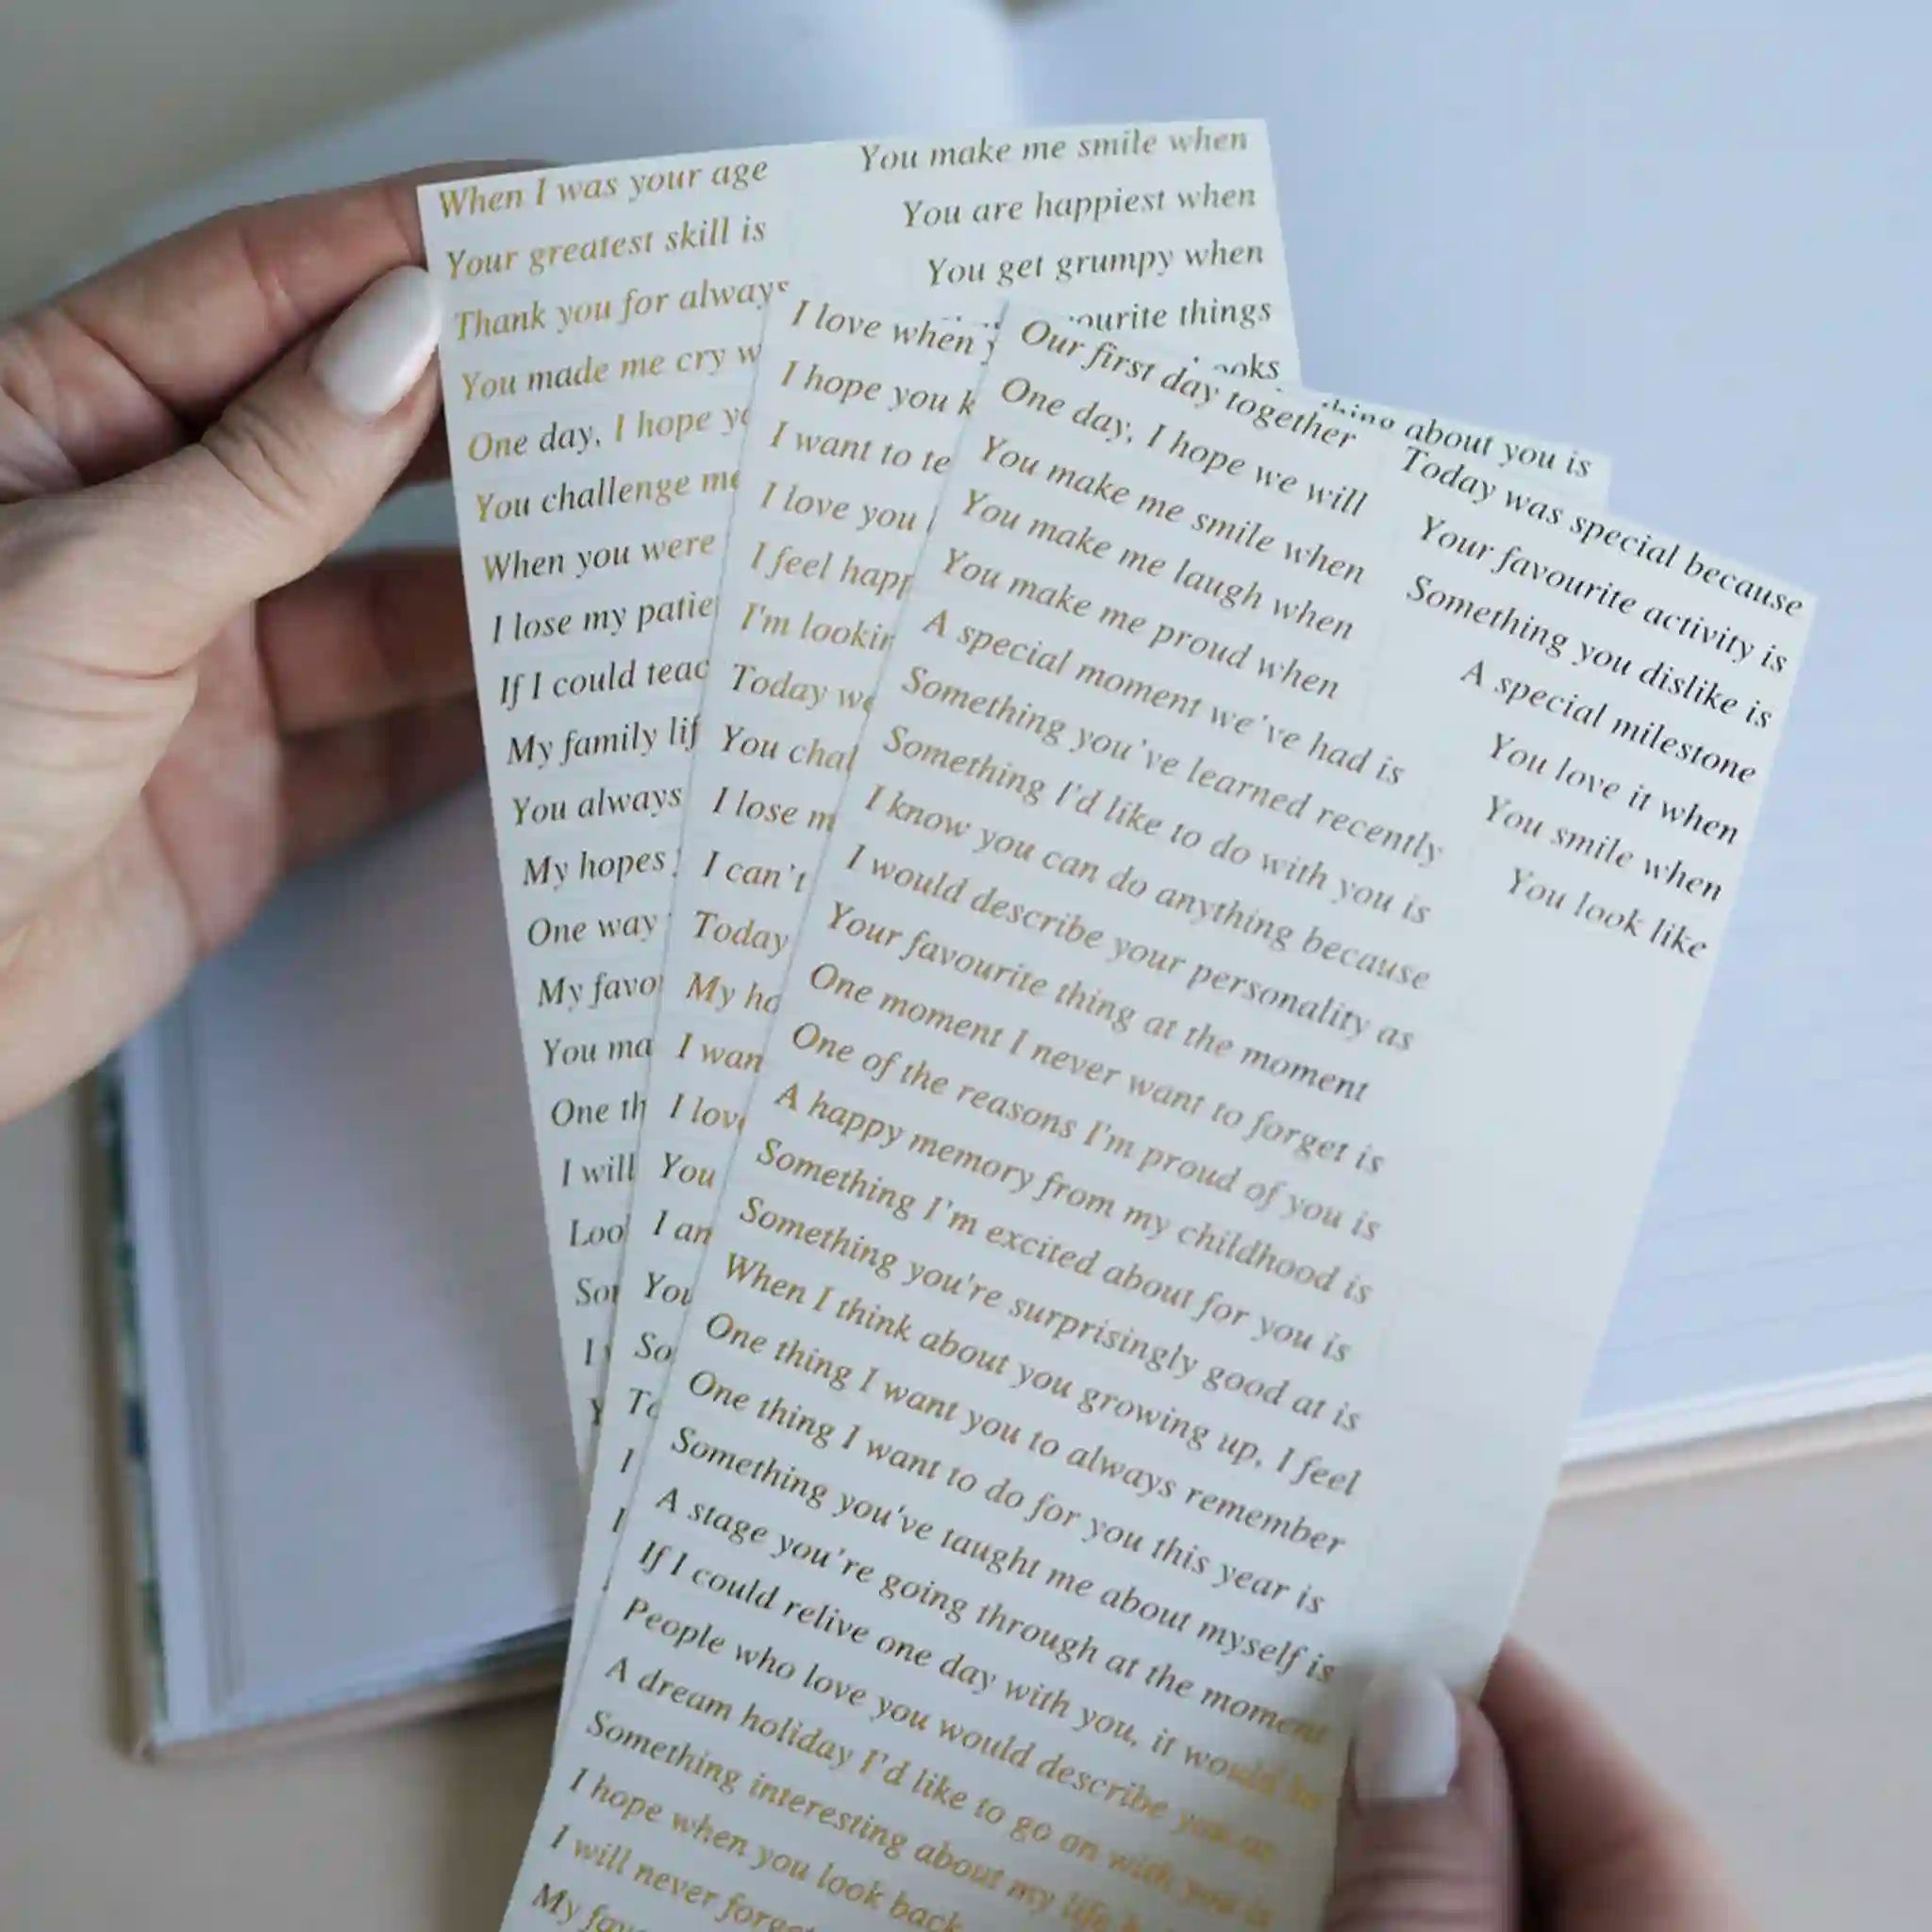 When I was your age
Your greatest skill is
Thank you for always
You made me cry
One day, I hope
You challenge me
When you were
I lose my
If I could
My family
You always
My hopes
One way
My
You
One
I will
You make me smile when
You are happiest when
You get grumpy when
things
I love when
I hope you
I want to
I love you
I feel
I'm
Today
You
I lose
I can't
Today
My
I
I
You
I
about you is
Our first day together
One day, I hope we will
You make me smile when
You make me laugh when
You make me proud when
A special moment we've had is
Something you've learned recently
Something I'd like to do with you is
I know you can do anything because
I would describe your personality as
Your favourite thing at the moment
One moment I never want to forget is
One of the reasons I'm proud of you is
A happy memory from my childhood is
Something I'm excited about for you is
Something you're surprisingly good at is
When I think about you growing up, I feel
One thing I want you to always remember
One thing I want to do for you this year is
Something you've taught me about myself is
A stage you're going through at the moment
If I could relive one day with you, it would be
People who love you would describe you as
A dream holiday I'd like to go on with you is
Something interesting about my life
I hope when you look back
I will never forget
My
Today was special because
Your favourite activity is
Something you dislike is
A special milestone
You love it when
You smile when
You look like